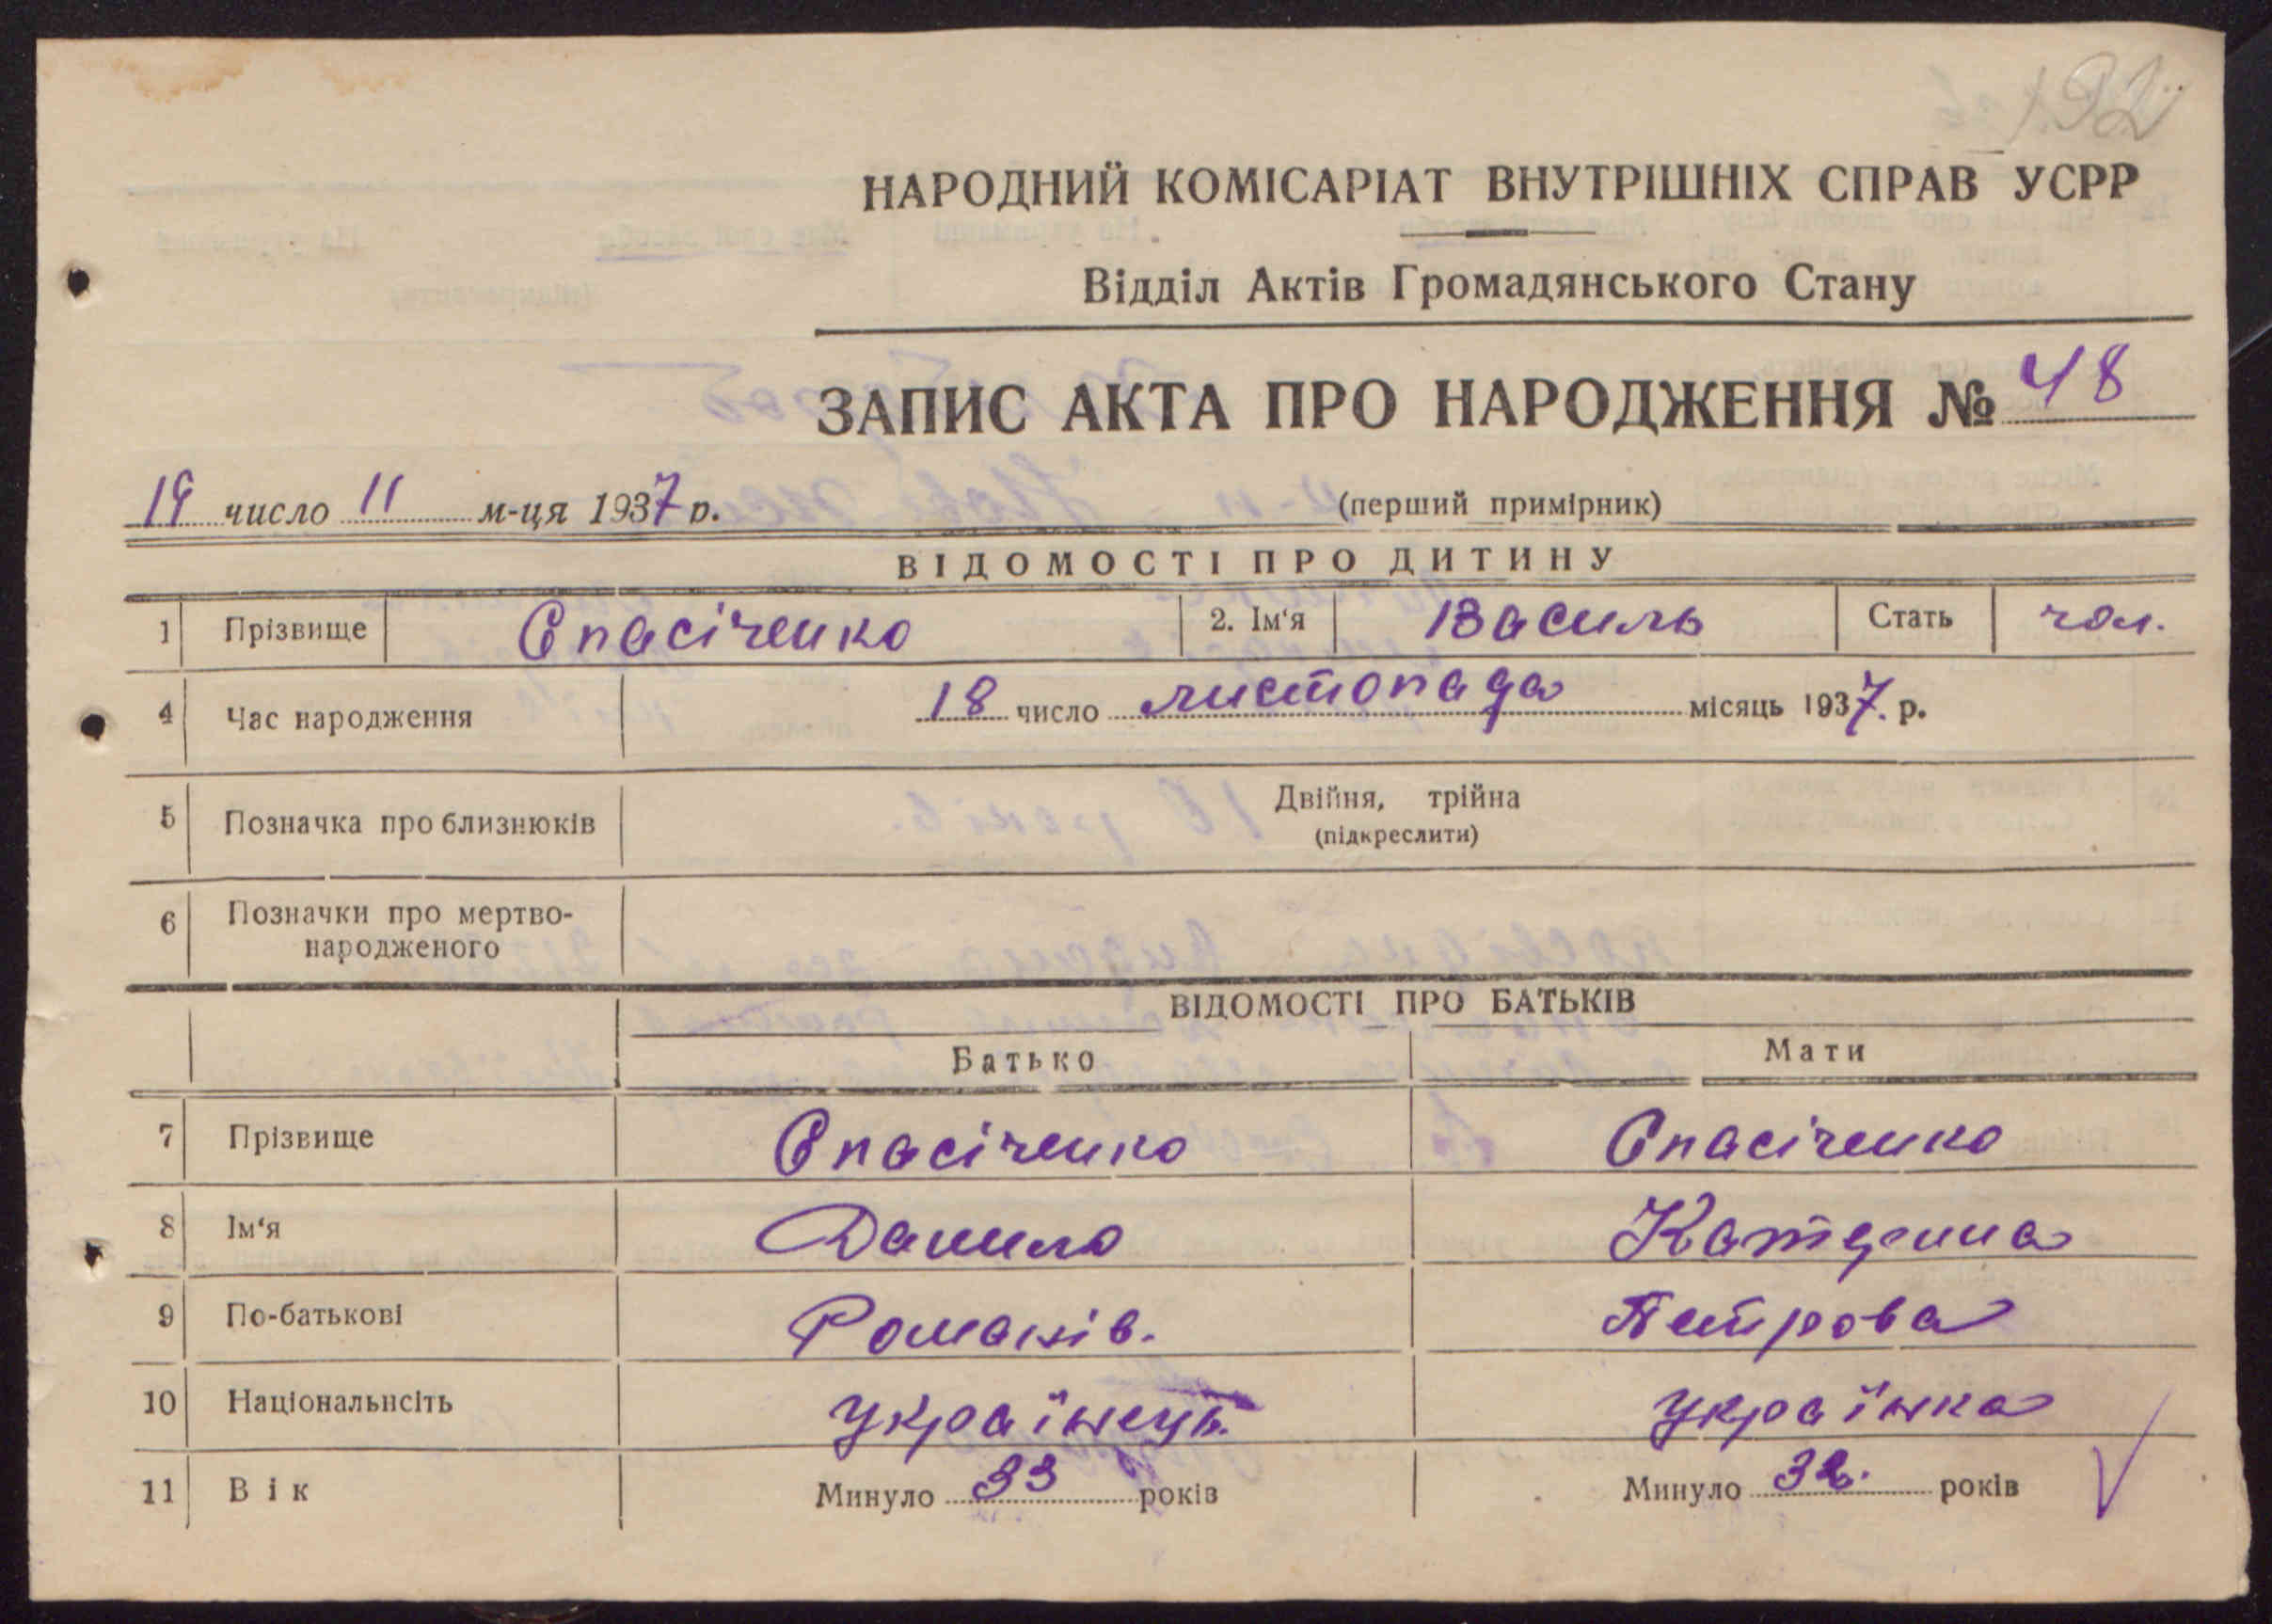 192
НАРОДНИЙ КОМІСАРІАТ ВНУТРІШНІХ СПРАВ УСРР
Відділ Актів Громадянського Стану
ЗАПИС АКТА ПРО НАРОДЖЕННЯ № 48
19 число 11 м-ця 1937 р. (перший примірник)
ВІДОМОСТІ ПРО ДИТИНУ
1 Прізвище Спасіченко 2. Ім‘я Василь Стать чол.
4 Час народження 18 число листопада місяць 1937. р.
5 Позначка про близнюків Двійня, трійна
(підкреслити)
6 Позначки про мертво-
народженого
ВІДОМОСТІ ПРО БАТЬКІВ
Батько Мати
7 Прізвище Спасіченко Спасіченко
8 Ім‘я Данило Катерина
9 По-батькові Романів. Петрова
10 Національнсіть Українець. Українка
11 Вік Минуло 33 років Минуло 32. років